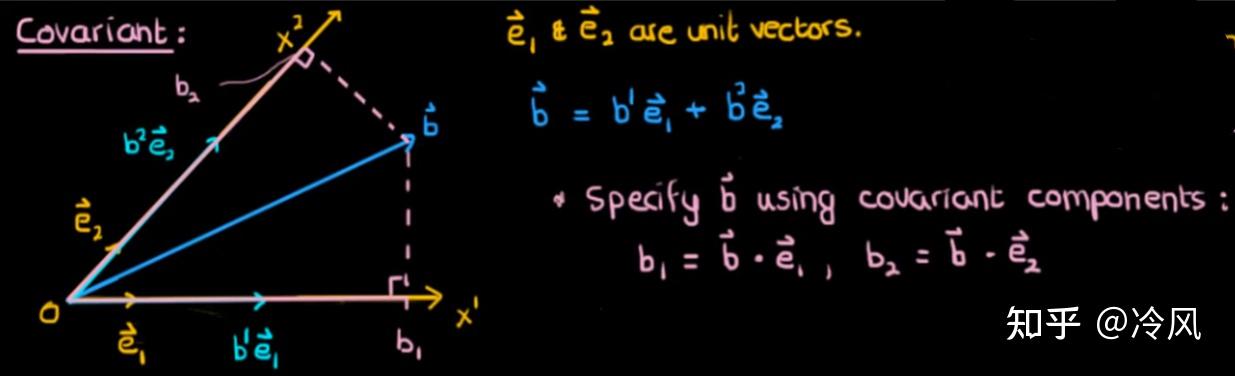 Covariant:
x²
b₂
b⃗
b²e⃗₂
e⃗₂
O
e⃗₁
b¹e⃗₁
b₁
x¹
e⃗₁ & e⃗₂ are unit vectors.
b⃗ = b¹e⃗₁ + b²e⃗₂
* Specify b⃗ using covariant components:
b₁ = b⃗ · e⃗₁, b₂ = b⃗ · e⃗₂
知乎 @冷风